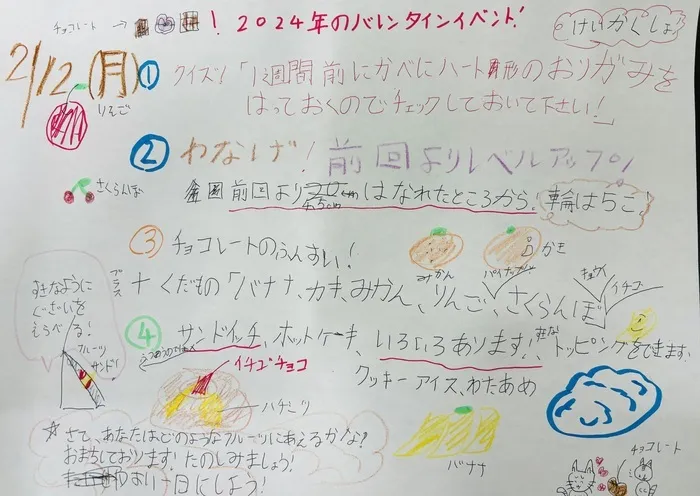 チョコレート → ! 2024年のバレンタインイベント!
けいかくしょ
2/12(月)
りんご
① クイズ!「1週間前にかべにハート形のおりがみを
はっておくのでチェックしておいて下さい!」
② わなげ! 前回よりレベルアップ!
さくらんぼ
前回よりはなれたところから。輪は5こ!
③ チョコレートのふんすい!
みかん
かき
プラス
+ くだもの「バナナ、カキ、みかん、りんご、さくらんぼ」
パイナップル
キュウイ
イチゴ
すきなように
ぐざいを
えらべる!
フルーツ
サンド!
④ サンドイッチ、ホットケーキ、いろいろあります! トッピングもできます。
クッキー アイス、わたあめ
イチゴチョコ
ハチミツ
☆ さて、あなたはどのようなフルーツにあえるかな?
おまちしております! たのしみましょう!
よい一日にしよう!
バナナ
チョコレート